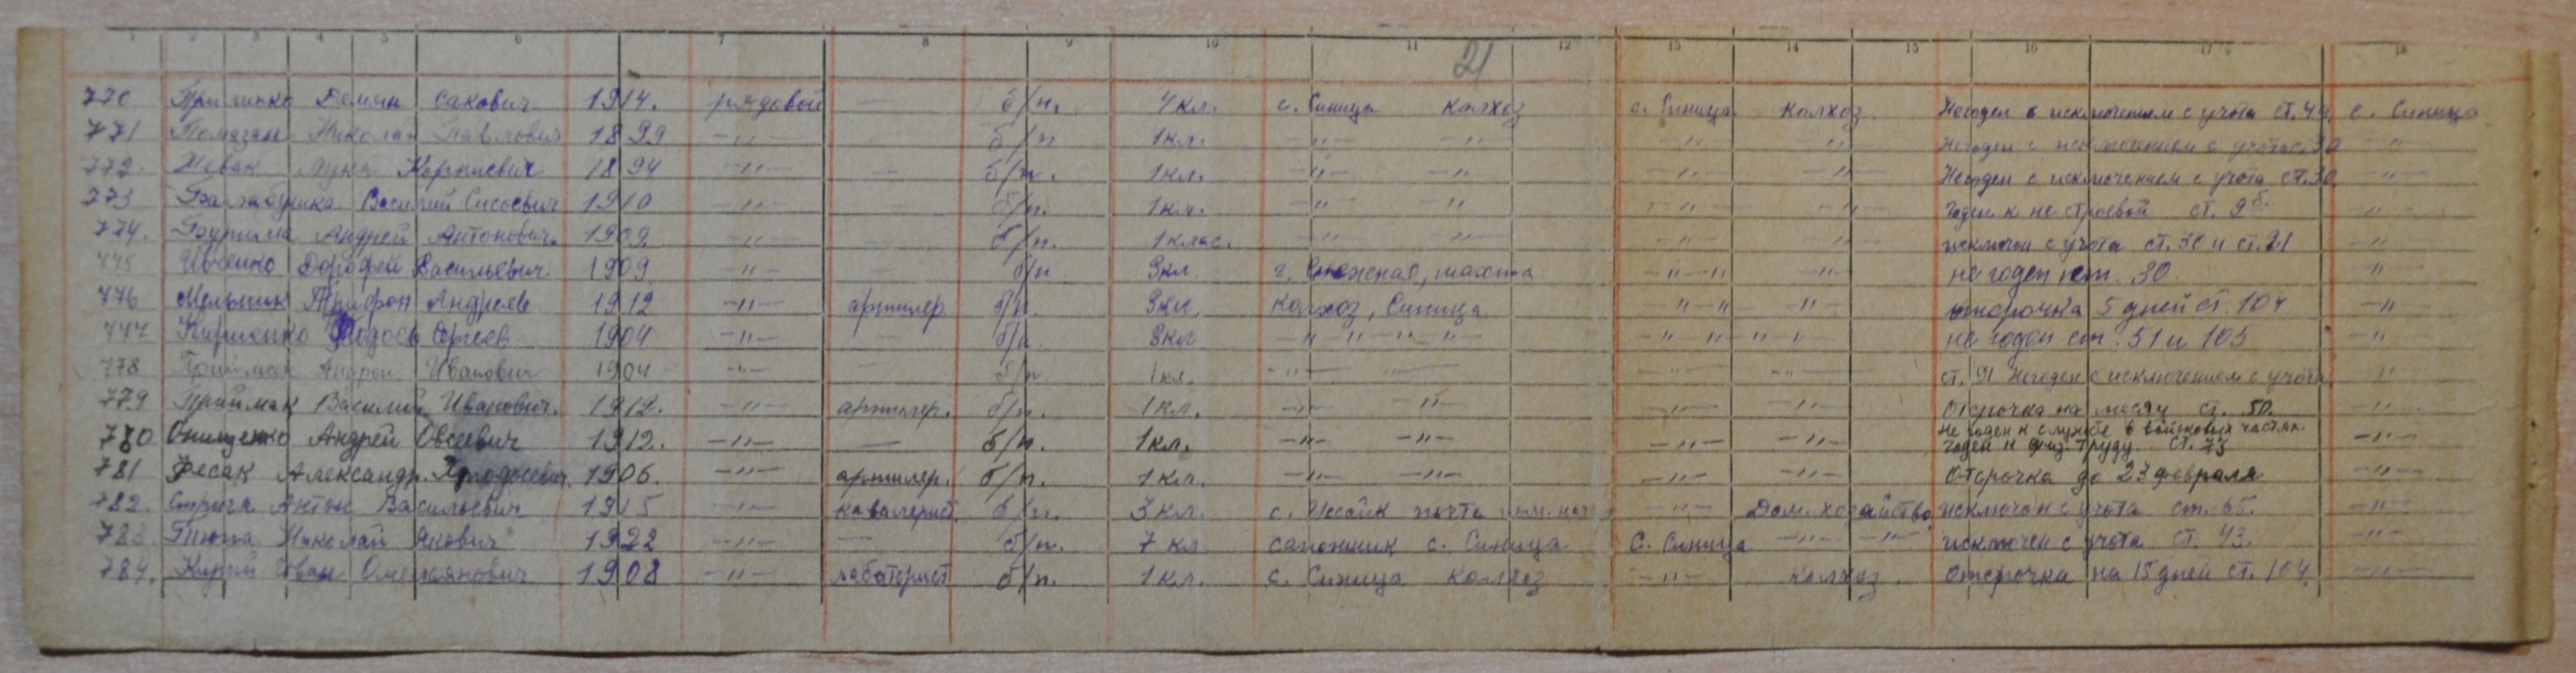 1 2 3 4 5 6 7 8 9 10 11 12 13 14 15 16 17 18
21
770 Демян Сакович 1914. рядовой — б/п. 4 кл. с. Синица колхоз с. Синица колхоз Негоден с исключением с учёта ст. 49 с. Синица
771 Помазан Николай Павлович 1899 —"— б/п 1 кл. —"— —"— —"— —"— Негоден с исключением с учёта с. 30 —"
772. Лука Карпиевич 1894 —"— — б/п. 1 кл. —"— —"— —"— —"— Негоден с исключением с учёта ст. 30 —"—
773 Балабушка Василий Сисоевич 1910 —"— б/п. 1 кл. —"— —"— —"— —"— Годен к не строевой ст. 9б. —"—
774. Андрей Антонович 1909 —"— б/п. 1 клас. —"— —"— —"— —"— исключен с учёта ст. 30 и ст. 21 —"—
775 Ивченко Дорофей Васильевич 1909 —"— — б/п 3 кл. г. Снежная, шахта —"—"— —"— не годен ст. 30. "
776 Мельник Трифон Андреев 1912 —"— артилер б/п. 3 кл. колхоз, Синица —"—"— "— отсрочка 5 дней ст. 104 —"
777 Кириенко Федось Сергеев 1904 —"— — б/п 3 кл —"—"—"—"— —"—"—"—"— не годен ст. 51 и 105 —"
778 Приймак Андрей Иванович 1904 —"— — б/п 1 кл. —"— —"— —"— —"— ст. 91 Негоден с исключением с учёта "
779 Приймак Василий Иванович. 1912. —"— артилер. б/п. 1 кл. —"— —"— —"— —"— Отсрочка на месяц ст. 50. —"
780 Онищенко Андрей Овсеевич 1912. —"— — б/п. 1 кл. —"— —"— —"— —"— Не годен к службе в войсковых частях. Годен к физ. труду. Ст. 73 —"—
781 Фесак Александр 1906. —"— артилер. б/п. 1 кл. —"— —"— —"— —"— Отсрочка до 23 февраля —"—
782. Стрига Антон Васильевич 1915 —"— кавалерист. б/п. 3 кл. почта —"— Дом. хозяйство исключен с учёта ст. 65. —"—
783. Тюпа Николай Якович 1922 —"— — б/п. 7 кл. сапожник с. Синица С. Синица —"— —"— исключен с учёта ст. 43. —"—
784. Иван Омельянович 1908 —"— б/п. 1 кл. с. Синица колхоз —"— колхоз. Отсрочка на 15 дней ст. 104. —"—